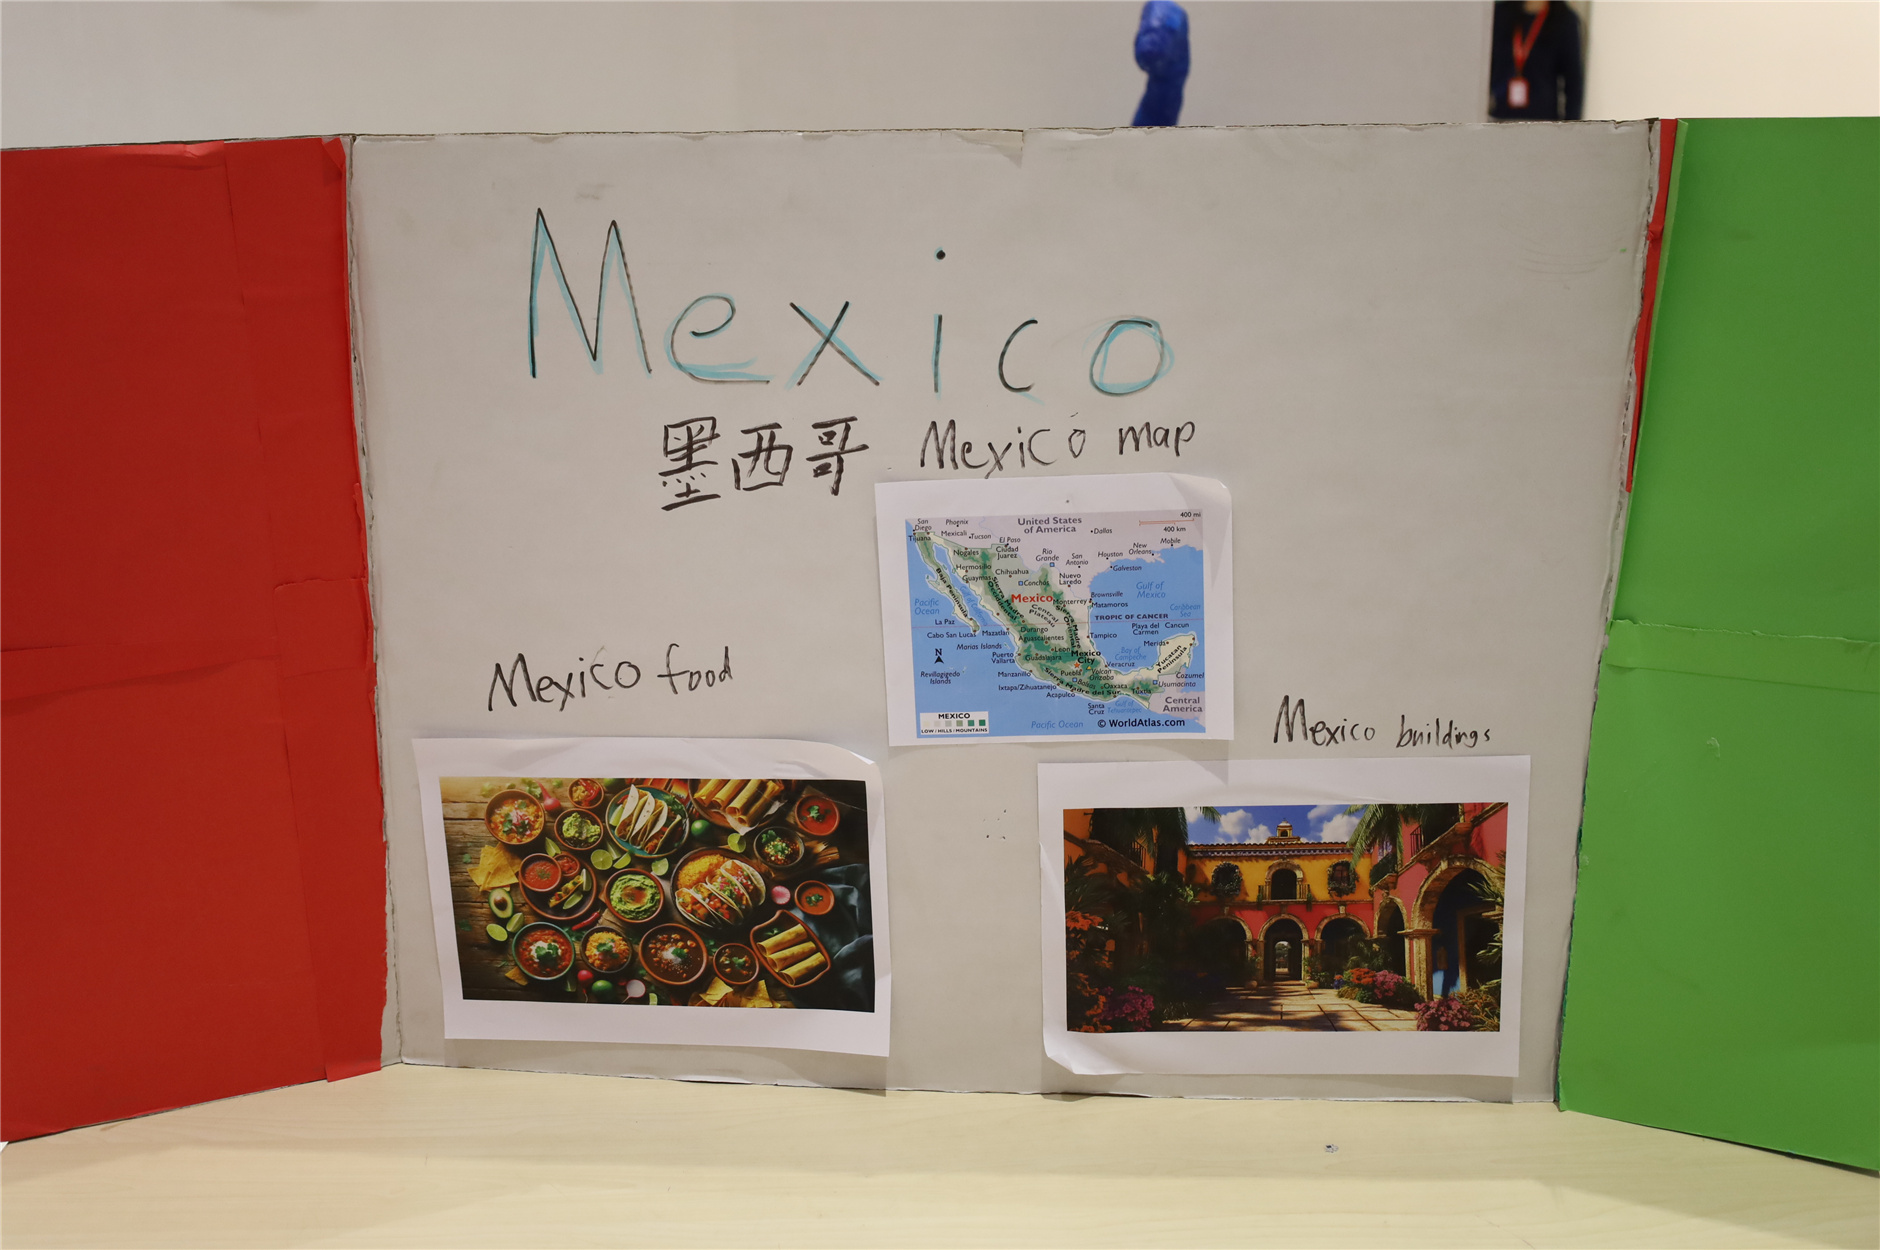 Mexico
墨西哥
Mexico map
United States
of America
400 mi
400 km
San
Diego
Tijuana
Phoenix
Mexicali
Tucson
El Paso
Ciudad
Juarez
Nogales
Dallas
Rio
Grande
San
Antonio
Houston
New
Orleans
Mobile
Galveston
Hermosillo
Guaymas
Chihuahua
Conchos
Nuevo
Laredo
Gulf of
Mexico
Baja Peninsula
Sierra Madre
Occidental
Mexico
Monterrey
Brownsville
Matamoros
Central
Plateau
Sierra Madre
Oriental
Pacific
Ocean
Caribbean
Sea
TROPIC OF CANCER
La Paz
Cabo San Lucas
Mazatlan
Durango
Aguascalientes
Tampico
Playa del
Carmen
Cancun
Merida
Marias Islands
Leon
Puerto
Vallarta
Guadalajara
Mexico
City
Bay of
Campeche
Veracruz
Yucatan
Peninsula
N
Manzanillo
Puebla
Volcan
Orizaba
Cozumel
Revillagigedo
Islands
Balsas
Ixtapa/Zihuatanejo
Acapulco
Oaxaca
Tuxtla
Usumacinta
Sierra Madre del Sur
Santa
Cruz
Gulf of
Tehuantepec
Central
America
Pacific Ocean
© WorldAtlas.com
MEXICO
LOW / HILLS / MOUNTAINS
Mexico food
Mexico buildings